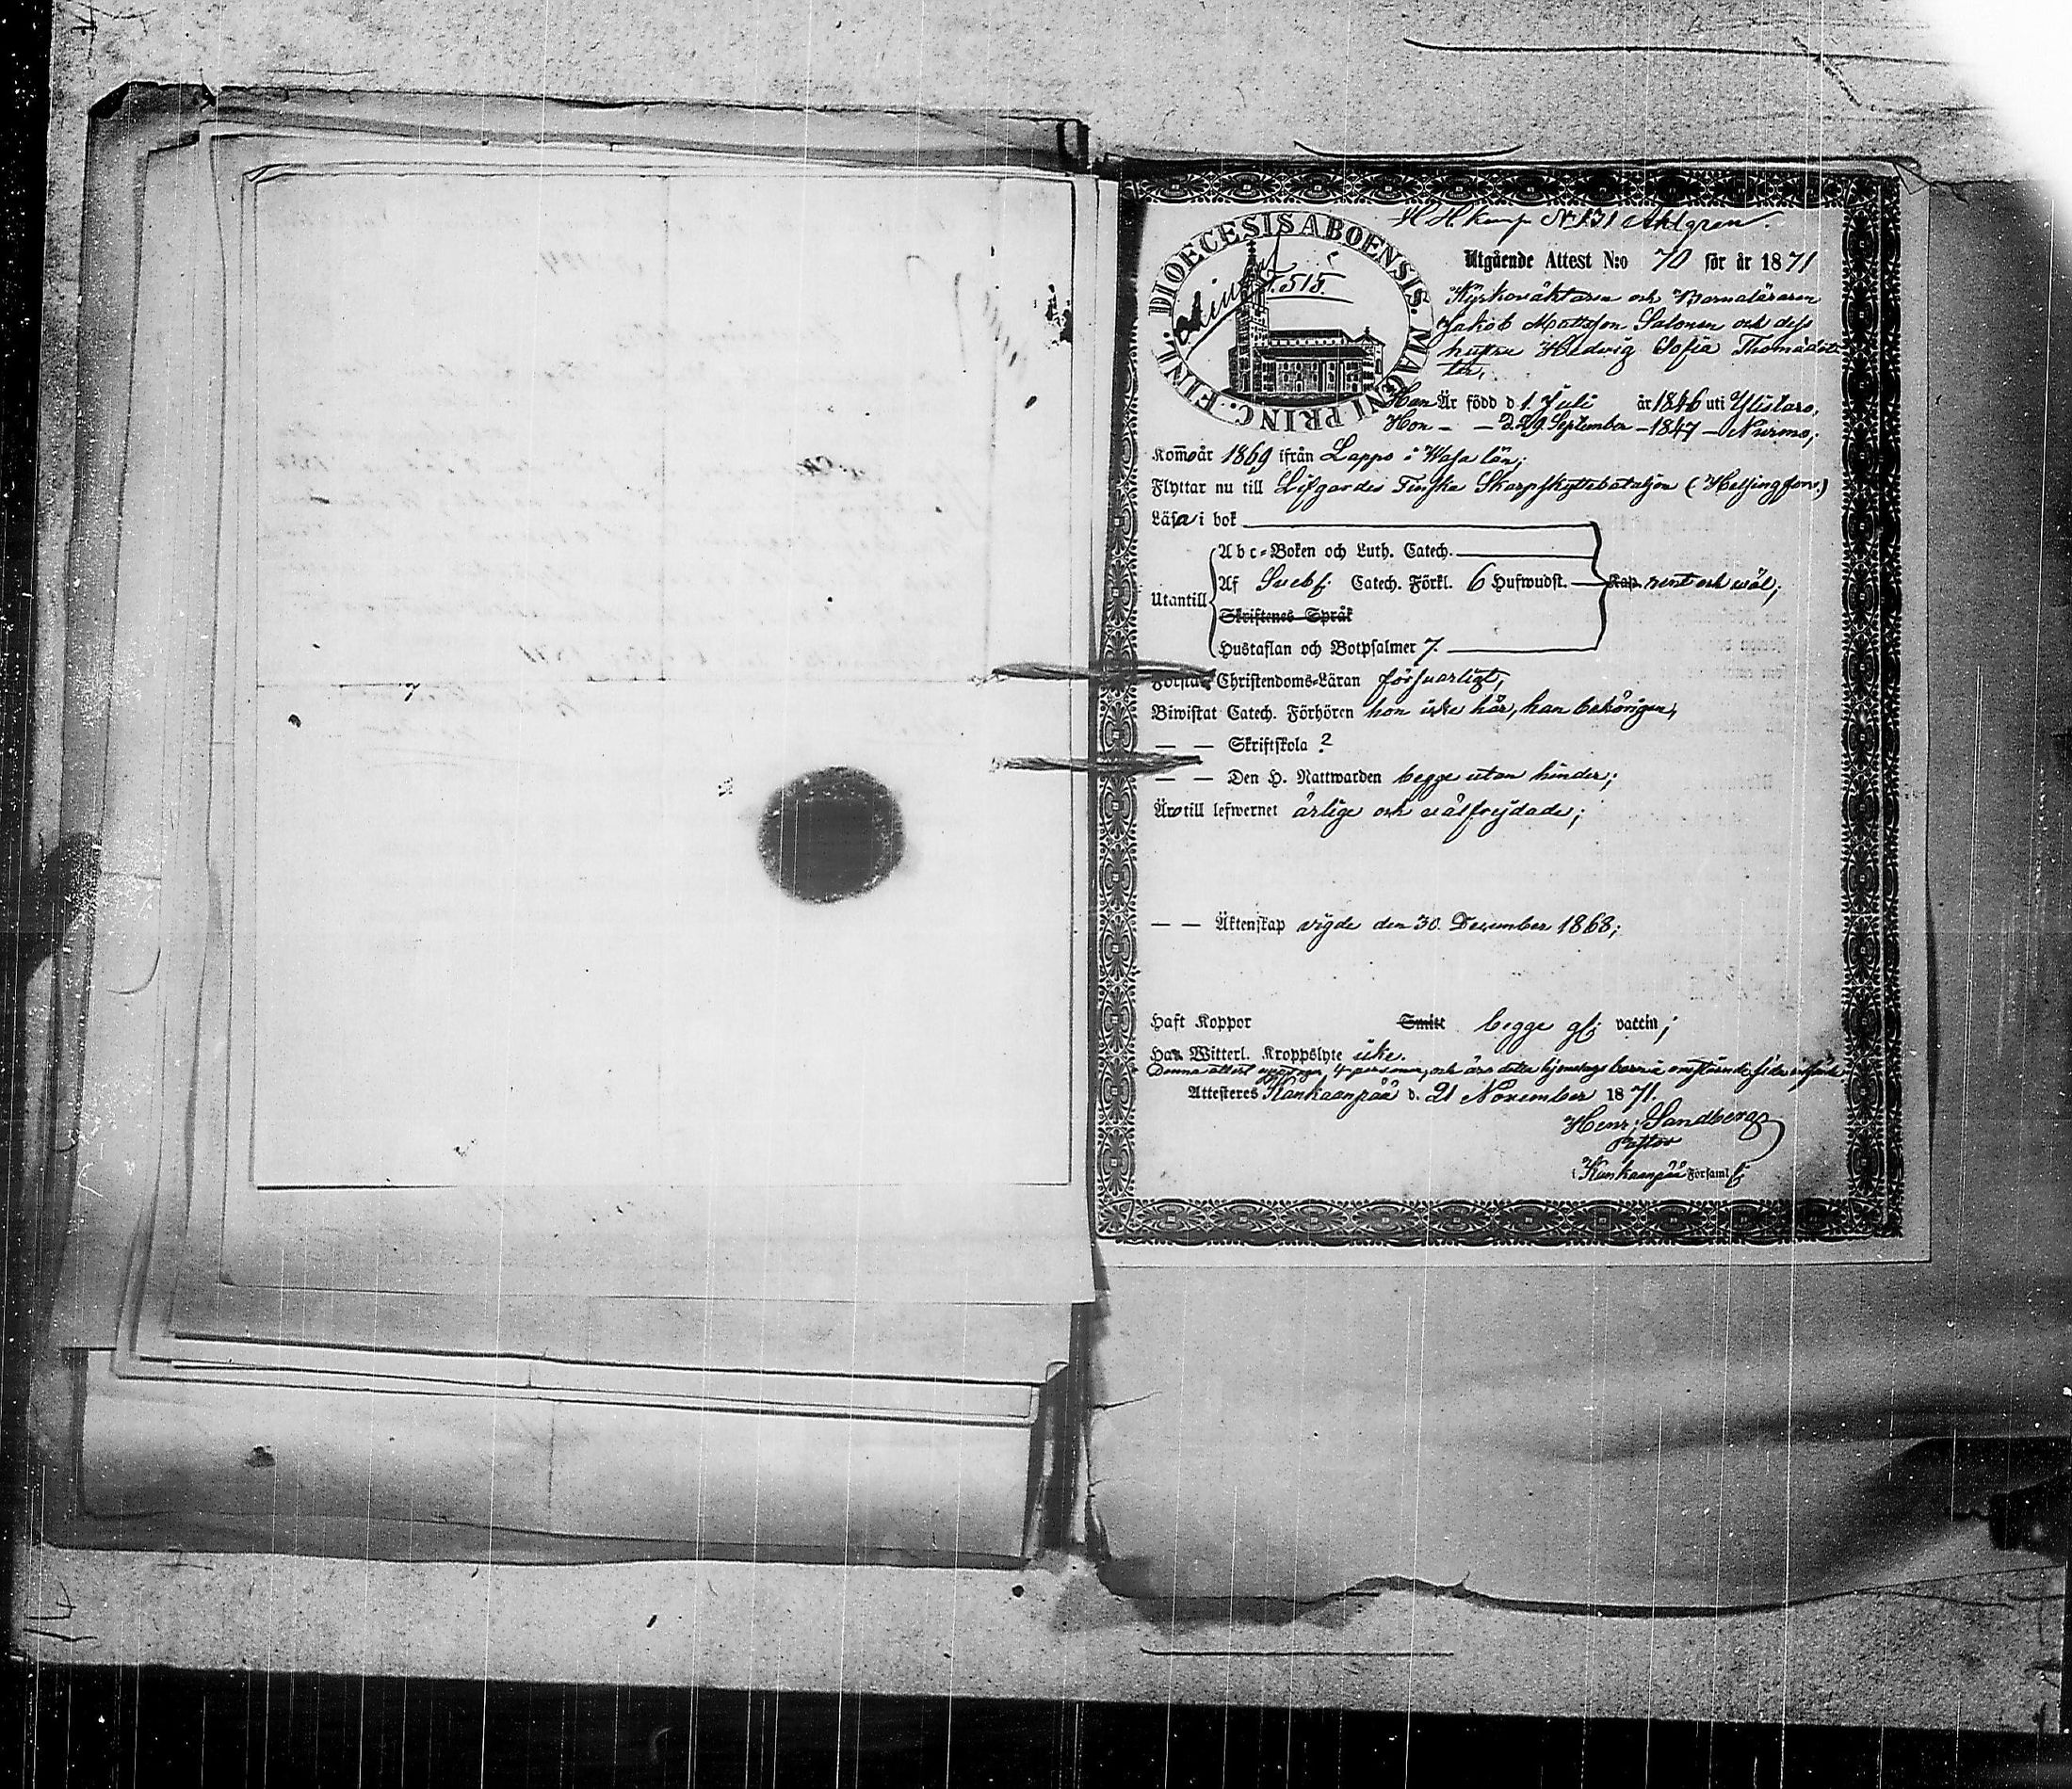 H H. komp N 131 Ahlgren.
DIOECESIS ABOENSIS. MAGNI PRINC. FINL.
F. 515.
Utgående Attest N:o 70 för år 1871
Kyrkovaktaren och Barnaläraren
Jakob Mattsson Salonen och dess
hustru Hedvig Sofia Thomædot-
ter,
Han Är född d 1 Juli år 1846 uti Ylistaro,
Hon — — d 29 September — 1847 — Nurmo;
Kom år 1869 ifrån Lappo i Wasa län;
Flyttar nu till Lifgardes Finska Skarpskyttebataljon (Helsingfors.)
Läsa i bok
Abc-Boken och Luth. Catech.
Utantill Af Sveb. Catech. Förkl. 6 Hufwudst. rent och wäl;
Skriftenes Språk
Hustaflan och Botpsalmer 7.
Förstå Christendoms-Läran försvarligt,
Biwistat Catech. Förhören hon icke här, han behörigen,
— — Skriftskola ?
— — Den H. Nattwarden begge utan hinder;
Äro till lefwernet ärlige och välfrejdade;
— — Äktenskap vigde den 30. December 1868;
Haft Koppor Smitt begge vaccin;
Har Witterl. Kroppslyte icke.
Denna attest upptager 4 personer, och äro detta hjonelags barn å omstående sida
Attesteras Kankaanpää d. 21 November 1871.
Henr. Sandberg
Pastor
i Kankaanpää Församl.